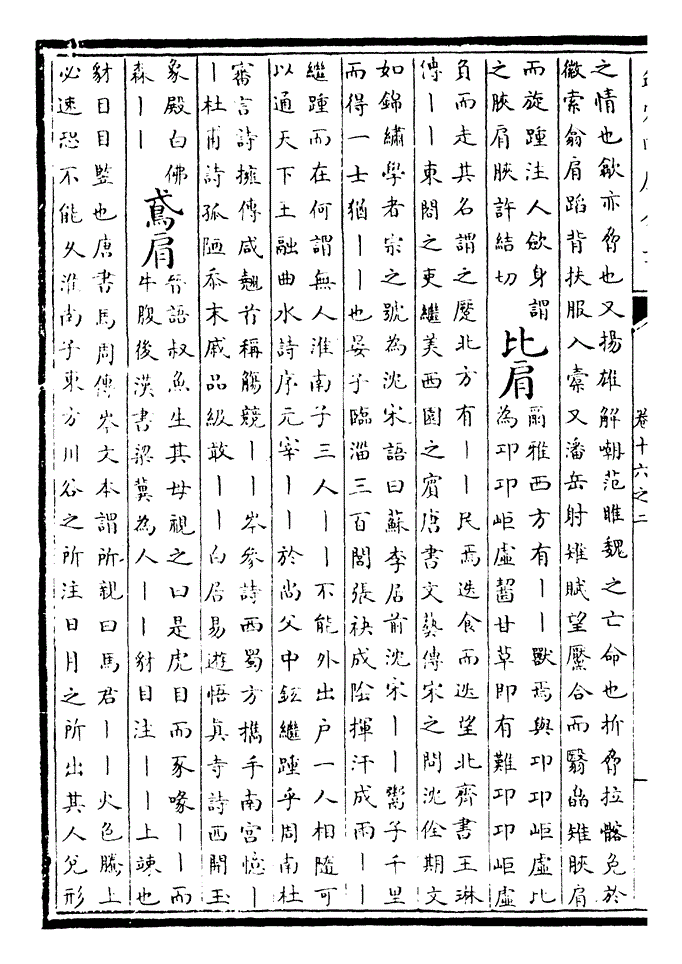 卷十六之二
之情也歙亦脅也又揚雄解嘲范雎魏之亡命也折脅拉髂免於
徽索翁肩蹈背扶服入橐又潘岳射雉賦望黶合而翳皛雉脥肩
而旋踵注人飲身謂
之脥肩脥許結切
比肩
爾雅西方有丨丨獸焉與卭卭岠虛比
為卭卭岠虛齧甘草即有難卭卭岠虛
負而走其名謂之蹷北方有丨丨民焉迭食而迭望北齊書王琳
傳丨丨東閤之吏繼美西園之賓唐書文藝傳宋之問沈佺期文
如錦繡學者宗之號為沈宋語曰蘇李居前沈宋丨丨鬻子千里
而得一士猶丨丨也晏子臨淄三百閭張袂成陰揮汗成雨丨丨
繼踵而在何謂無人淮南子三人丨丨不能外出户一人相隨可
以通天下王融曲水詩序元宰丨丨於尚父中鉉繼踵乎周南杜
審言詩擁傳咸翹首稱觴競丨丨岑參詩西蜀方攜手南宮憶丨
丨杜甫詩孤陋忝末戚品級敢丨丨白居易遊悟真寺詩西開玉
象殿白佛
森丨丨
鳶肩
晉語叔魚生其母視之曰是虎目而豕喙丨丨而
牛腹後漢書梁冀為人丨丨豺目注丨丨上竦也
豺目目豎也唐書馬周傳岑文本謂所親曰馬君丨丨火色騰上
必速恐不能久淮南子東方川谷之所注日月之所出其人兌形